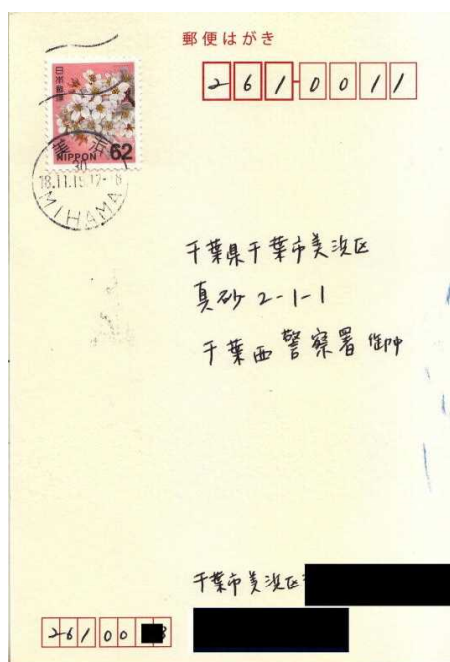 郵便はがき
261-0011
日本郵便
NIPPON 62
美浜
30
18.11.15.12-18
MIHAMA
千葉県千葉市美浜区
真砂2-1-1
千葉西警察署 御中
千葉市美浜区
26100 8